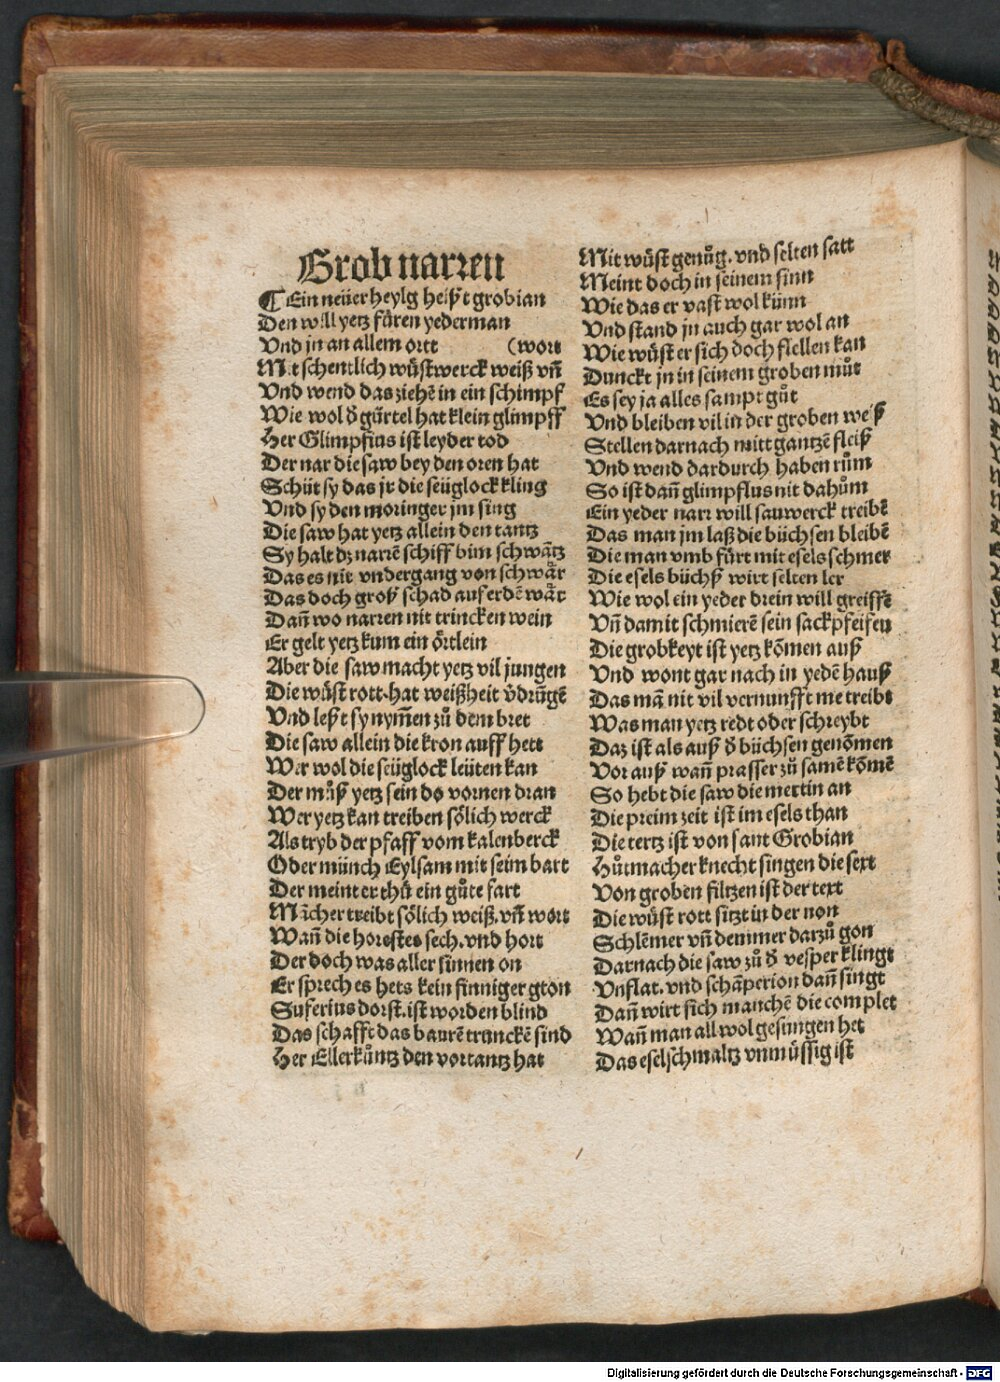 Grob narren
¶ Ein neüer heylg heißt grobian
Den will yetz fåren yederman
Vnd jn an allem ortt (wort
Mit schentlich wüstwerck weiß vñ
Vnd wend das ziehē in ein schimpf
Wie wol d̄ gürtel hat klein glimpff
Her Glimpfius ist leyder tod
Der nar die saw bey den oren hat
Schüt sy das jr die seüglock kling
Vnd sy den moringer jm sing
Die saw hat yetz allein den tantz
Sy halt dz narrē schiff bim schwātz
Das es nit vndergang von schwår
Das doch groß schad auf erdē wår
Dañ wo narren nit trincken wein
Er gelt yetz kum ein örtlein
Aber die saw macht yetz vil jungen
Die wüst rott hat weißheit v̄drūgē
Vnd leßt sy nym̄en zů dem bret
Die saw allein die kron auff hett
Wer wol die seüglock leüten kan
Der můß yetz sein do vornen dran
Wer yetz kan treiben sölich werck
Als tryb der pfaff vom kalenberck
Oder münch Eylsam mit seim bart
Der meint er thü ein gůte fart
Mācher treibt sölich weiß, vñ wort
Wañ die horestes sech, vnd hort
Der doch was aller sinnen on
Er sprech es hets kein sinniger gton
Suferius dorst, ist worden blind
Das schafft das baurē trunckē sind
Her Ellerküntz den vortantz hat
Mit wüst genůg, vnd selten satt
Meint doch in seinem sinn
Wie das er vast wol künn
Vnd stand jn auch gar wol an
Wie wüst er sich doch stellen kan
Dunckt jn in seinem groben můt
Es sey ja alles sampt gůt
Vnd bleiben vil in der groben weß
Stellen darnach mitt gantzē fleiß
Vnd wend dardurch haben rům
So ist dañ glimpflus nit dahům
Ein yeder narr will sauwerck treibē
Das man jm laß die büchsen bleibē
Die man vmb fürt mit esels schmer
Die esels büchß wirt selten ler
Wie wol ein yeder drein will greiffē
Vñ damit schmierē sein sackpfeifen
Die grobkeyt ist yetz kōmen auß
Vnd wont gar nach in yedē hauß
Das mā nit vil vernunfft me treibt
Was man yetz redt oder schreybt
Daz ist als auß d̄ büchsen genōmen
Vor auß wañ prasser zů samē kōmē
So hebt die saw die mettin an
Die preim zeit ist im esels than
Die tertz ist von sant Grobian
Hůtmacher knecht singen die sext
Von groben filtzen ist der text
Die wüst rott sitzt in der non
Schlēmer vñ demmer darzů gon
Darnach die saw zů d̄ vesper klingt
Vnflat, vnd schāperion dañ singt
Dañ wirt sich manchē die complet
Wañ man all wol gesungen het
Das eselschmaltz vnmüssig ist
Digitalisierung gefördert durch die Deutsche Forschungsgemeinschaft - DFG